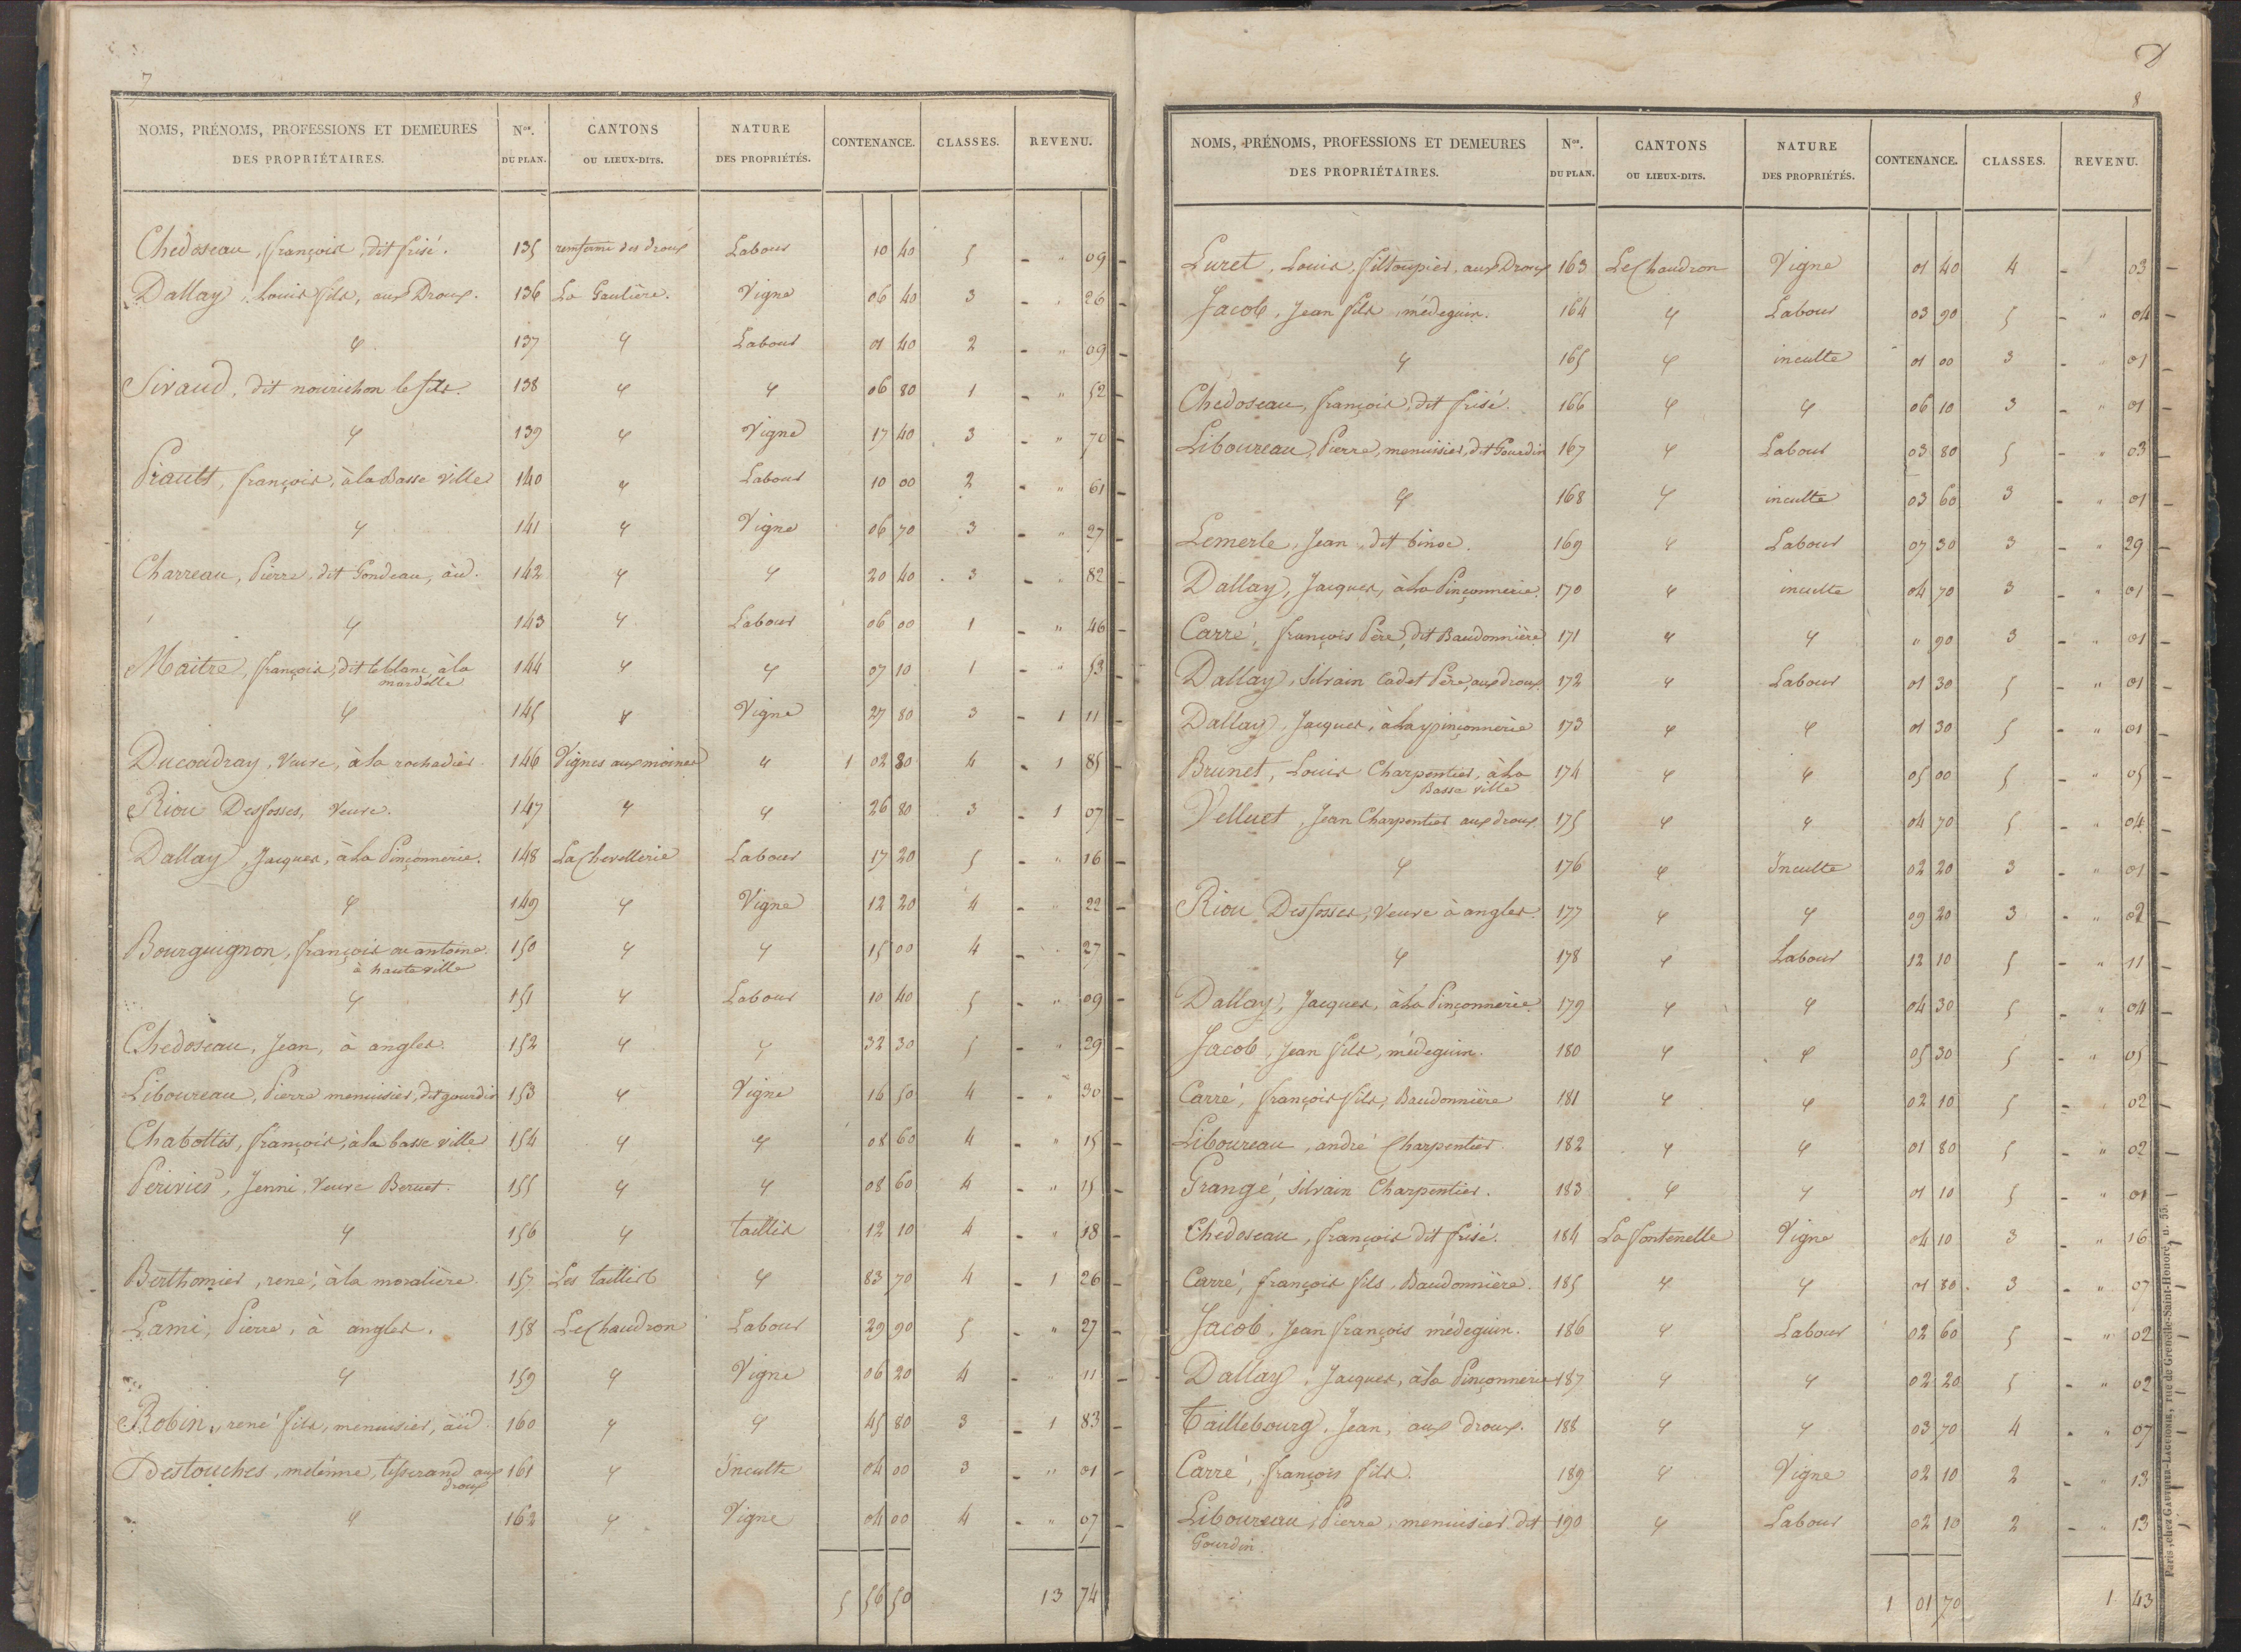 7
NOMS, PRÉNOMS, PROFESSIONS ET DEMEURES DES PROPRIÉTAIRES. Nos. DU PLAN. CANTONS OU LIEUX-DITS. NATURE DES PROPRIÉTÉS. CONTENANCE. CLASSES. REVENU.
Chedoseau, françois, dit frisé. 135 renferme des droux Labour 10 40 5 - " 09 -
Dallay, Louis fils, aux Droux. 136 La Gautière. Vigne 06 40 3 - " 26 -
" 137 " Labour 01 40 2 - " 09 -
Siraud, dit nourichon le fils. 138 " " 06 80 1 - " 52 -
" 139 " Vigne 17 40 3 - " 70 -
Piault, françois, à la Basse Ville 140 " Labour 10 00 2 - " 61 -
" 141 " Vigne 06 70 3 - " 27 -
Charreau, Pierre, dit Gondeau, àid. 142 " " 20 40 3 - " 82 -
" 143 " Labour 06 00 1 - " 46 -
Maitre, françois, dit leblanc, à la mardelle 144 " " 07 10 1 - " 53 -
" 145 " Vigne 27 80 3 - 1 11 -
Ducoudray, Veuve, à la rochadier 146 Vignes aux moines " 1 02 80 4 - 1 85 -
Riou Desfosses, Veuve. 147 " " 26 80 3 - 1 07 -
Dallay, Jacques, à la Pinçonnerie. 148 La Chevollerie Labour 17 20 5 - " 16 -
" 149 " Vigne 12 20 4 - " 22 -
Bourguignon, françois ou antoine à haute ville 150 " " 15 00 4 - " 27 -
" 151 " Labour 10 40 5 - " 09 -
Chedoseau, Jean, à angles. 152 " " 32 30 5 - " 29 -
Liboureau, Pierre menuisier, dit gourdin 153 " Vigne 16 50 4 - " 30 -
Chabottis, françois, à la basse ville 154 " " 08 60 4 - " 15 -
Perivier, Jenni, Veuve Beruet. 155 " " 08 60 4 - " 15 -
" 156 " taillis 12 10 4 - " 18 -
Berthomier, rené, à la moralière. 157 Les taillis " 83 70 4 - 1 26 -
Lami, Pierre, à angles. 158 Le Chaudron Labour 29 90 5 - " 27 -
" 159 " Vigne 06 20 4 - " 11 -
Robin, rené fils, menuisier, àid. 160 " " 45 80 3 - 1 83 -
Destouches, tisserand aux droux 161 " Inculte 04 00 3 - " 01 -
" 162 " Vigne 04 00 4 - " 07 -
5 56 50 13 74
8
NOMS, PRÉNOMS, PROFESSIONS ET DEMEURES DES PROPRIÉTAIRES. Nos. DU PLAN. CANTONS OU LIEUX-DITS. NATURE DES PROPRIÉTÉS. CONTENANCE. CLASSES. REVENU.
Luret, Louis, filtoupier, aux Droux 163 Le Chaudron Vigne 01 40 4 - 03 -
Jacob, Jean fils, médeguin. 164 " Labour 03 90 5 - " 04 -
" 165 " inculte 01 00 3 - " 01 -
Chedoseau, françois, dit frisé. 166 " " 06 10 3 - " 01 -
Liboureau, Pierre, menuisier, dit Gourdin 167 " Labour 03 80 5 - " 03 -
" 168 " inculte 03 60 3 - " 01 -
Lemerle, Jean, dit binoc. 169 " Labour 07 30 3 - " 29 -
Dallay, Jacques, à la Pinçonnerie. 170 " inculte 04 70 3 - " 01 -
Carré, françois Père, dit Baudonnière 171 " " " 90 3 - " 01 -
Dallay, Silvain Cadet Père, aux droux. 172 " Labour 01 30 5 - " 01 -
Dallay, Jacques, à la pinçonnerie 173 " " 01 30 5 - " 01 -
Brunet, Louis Charpentier, à la Basse ville 174 " " 05 00 5 - " 05 -
Velluet, Jean Charpentier aux droux. 175 " " 04 70 5 - " 04 -
" 176 " Inculte 02 20 3 - " 01 -
Riou Desfosses, Veuve à angles. 177 " " 09 20 3 - " 02 -
" 178 " Labour 12 10 5 - " 11 -
Dallay, Jacques, à la Pinçonnerie. 179 " " 04 30 5 - " 04 -
Jacob, Jean fils, médeguin. 180 " " 05 30 5 - " 05 -
Carré, françois fils, Baudonnière 181 " " 02 10 5 - " 02 -
Liboureau, andré Charpentier 182 " " 01 80 5 - " 02 -
Grangé, Silvain Charpentier. 183 " " 01 10 5 - " 01 -
Chedoseau, françois dit frisé. 184 La fontenelle Vigne 04 10 3 - " 16 -
Carré, françois fils, Baudonnière. 185 " " 01 80 3 - " 07 -
Jacob, Jean françois médeguin. 186 " Labour 02 60 5 - " 02 -
Dallay, Jacques, à la Pinçonnerie 187 " " 02 20 5 - " 02 -
Taillebourg, Jean, aux droux. 188 " " 03 70 4 - " 07 -
Carré, françois fils. 189 " Vigne 02 10 2 - " 13 -
Liboureau, Pierre, menuisier dit Gourdin. 190 " Labour 02 10 2 - " 13 -
1 01 70 1 43
Paris, chez GAUTHIER-LAGUIONIE, rue de Grenelle-Saint-Honoré, n. 55.